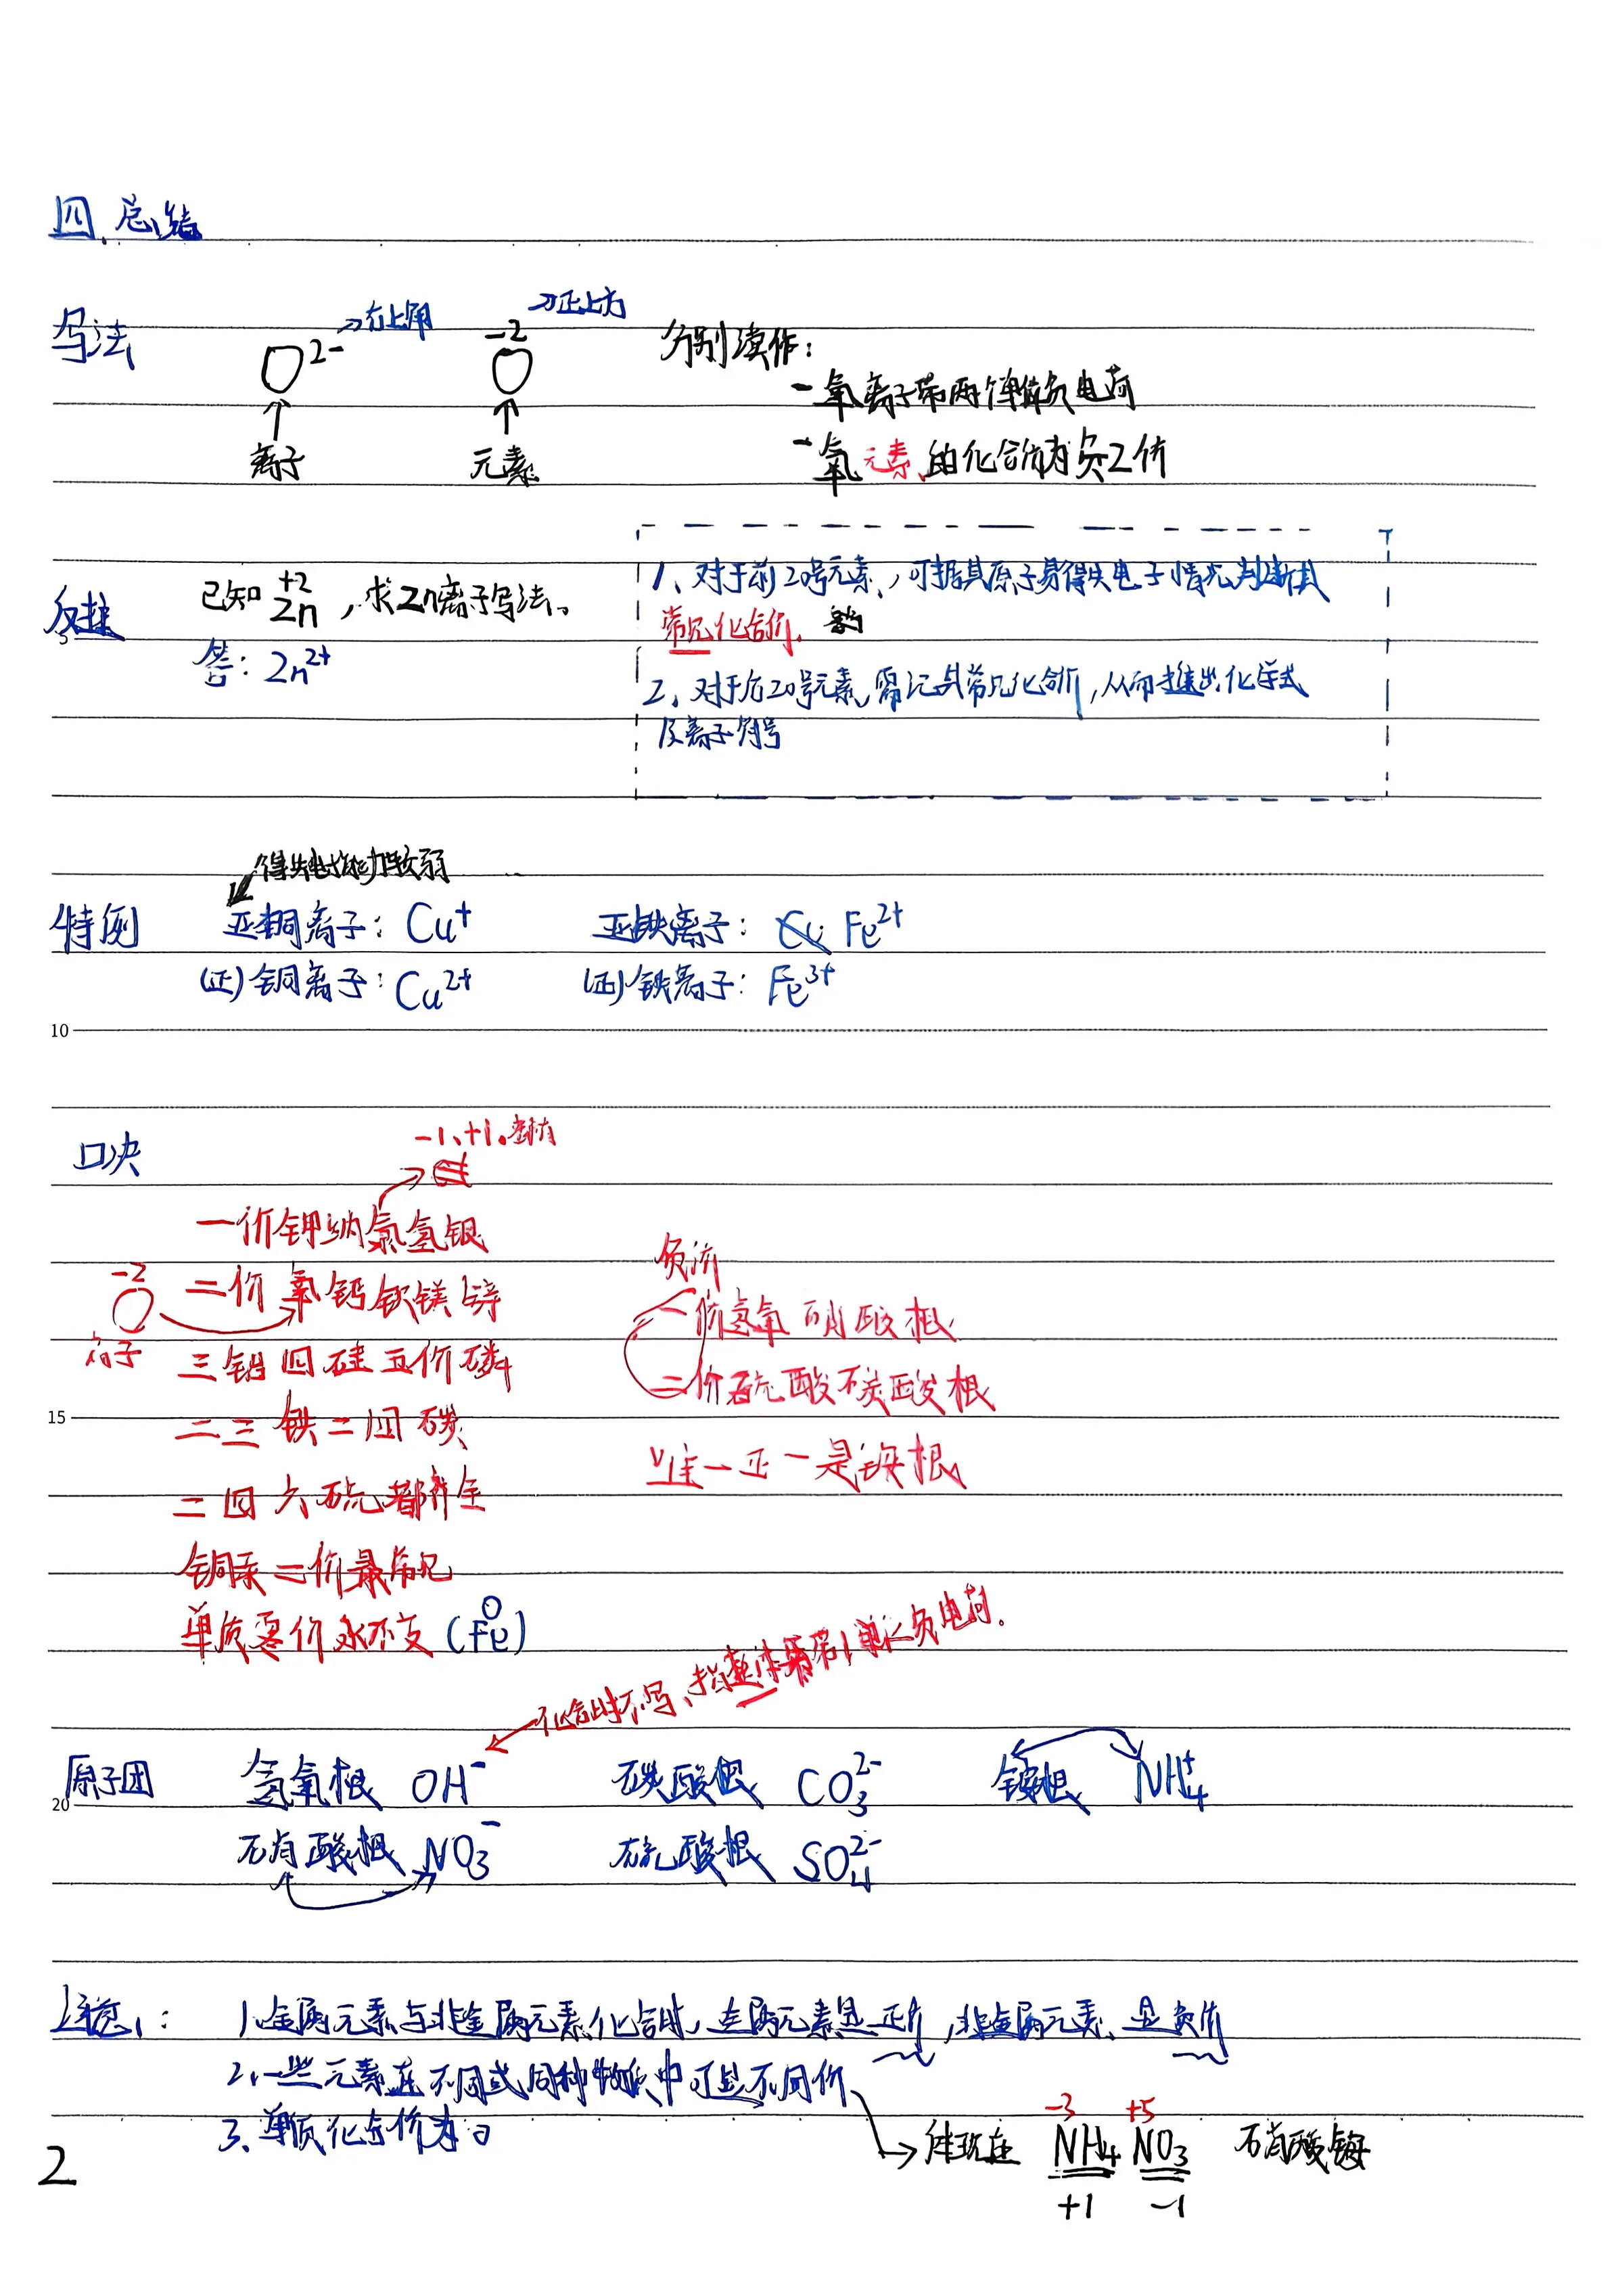 四、总结
写法
O2- →右上角
-2 O →正上方
离子
元素
分别读作：
-氧离子带两个单位负电荷
-氧元素的化合价为负2价
反推
已知 +2 Zn，求Zn离子写法。
答：Zn2+
1、对于前20号元素，可据其原子易得失电子情况判断其
常见化合价。
2、对于后20号元素，需记其常见化合价，从而推出化学式
及离子符号
得失电子能力较弱
特例
亚铜离子：Cu+ 亚铁离子：Fe2+
(正)铜离子：Cu2+ (正)铁离子：Fe3+
口决
-1、+1。都有
一价钾纳氯氢银
-2 O
二价氧钙钡镁锌
三铝四硅五价磷
二三铁二四碳
二四六硫都齐全
铜汞二价最常见
单质零价永不变(0 Fe)
负价
一价氢氧硝酸根
二价硫酸碳酸根
唯一正一是铵根
化合时不写、指整体带1单位负电荷。
原子团
氢氧根 OH- 碳酸根 CO3 2- 铵根 NH4+
硝酸根 NO3- 硫酸根 SO4 2-
注意：
1、金属元素与非金属元素化合时，金属元素显正价，非金属元素、显负价
2、一些元素在不同或同种物质中可显不同价、
3、单质化合价为0
→体现在 -3 +5 NH4 NO3 硝酸铵
+1 -1
2
5
10
15
20